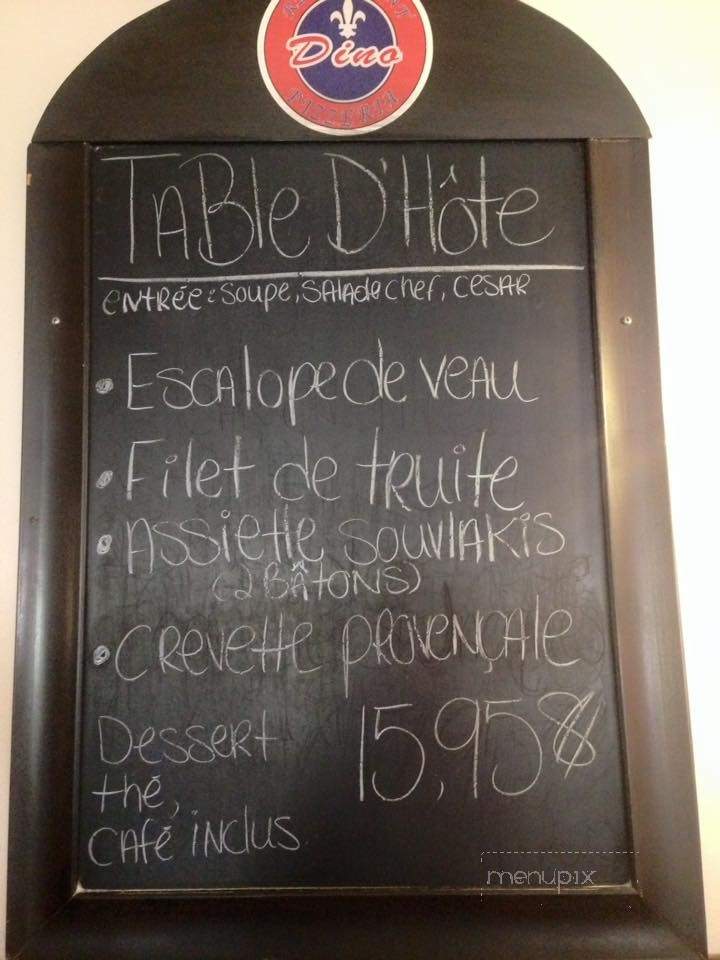 RESTAURANT
Dino
PIZZERIA
TABle D'Hôte
entrée : soupe, salade chef, césar
• Escalope de veau
• Filet de truite
• Assiette souvlakis
(2 bâtons)
• Crevette provençale
Dessert 15,95$
thé,
café inclus
menupix